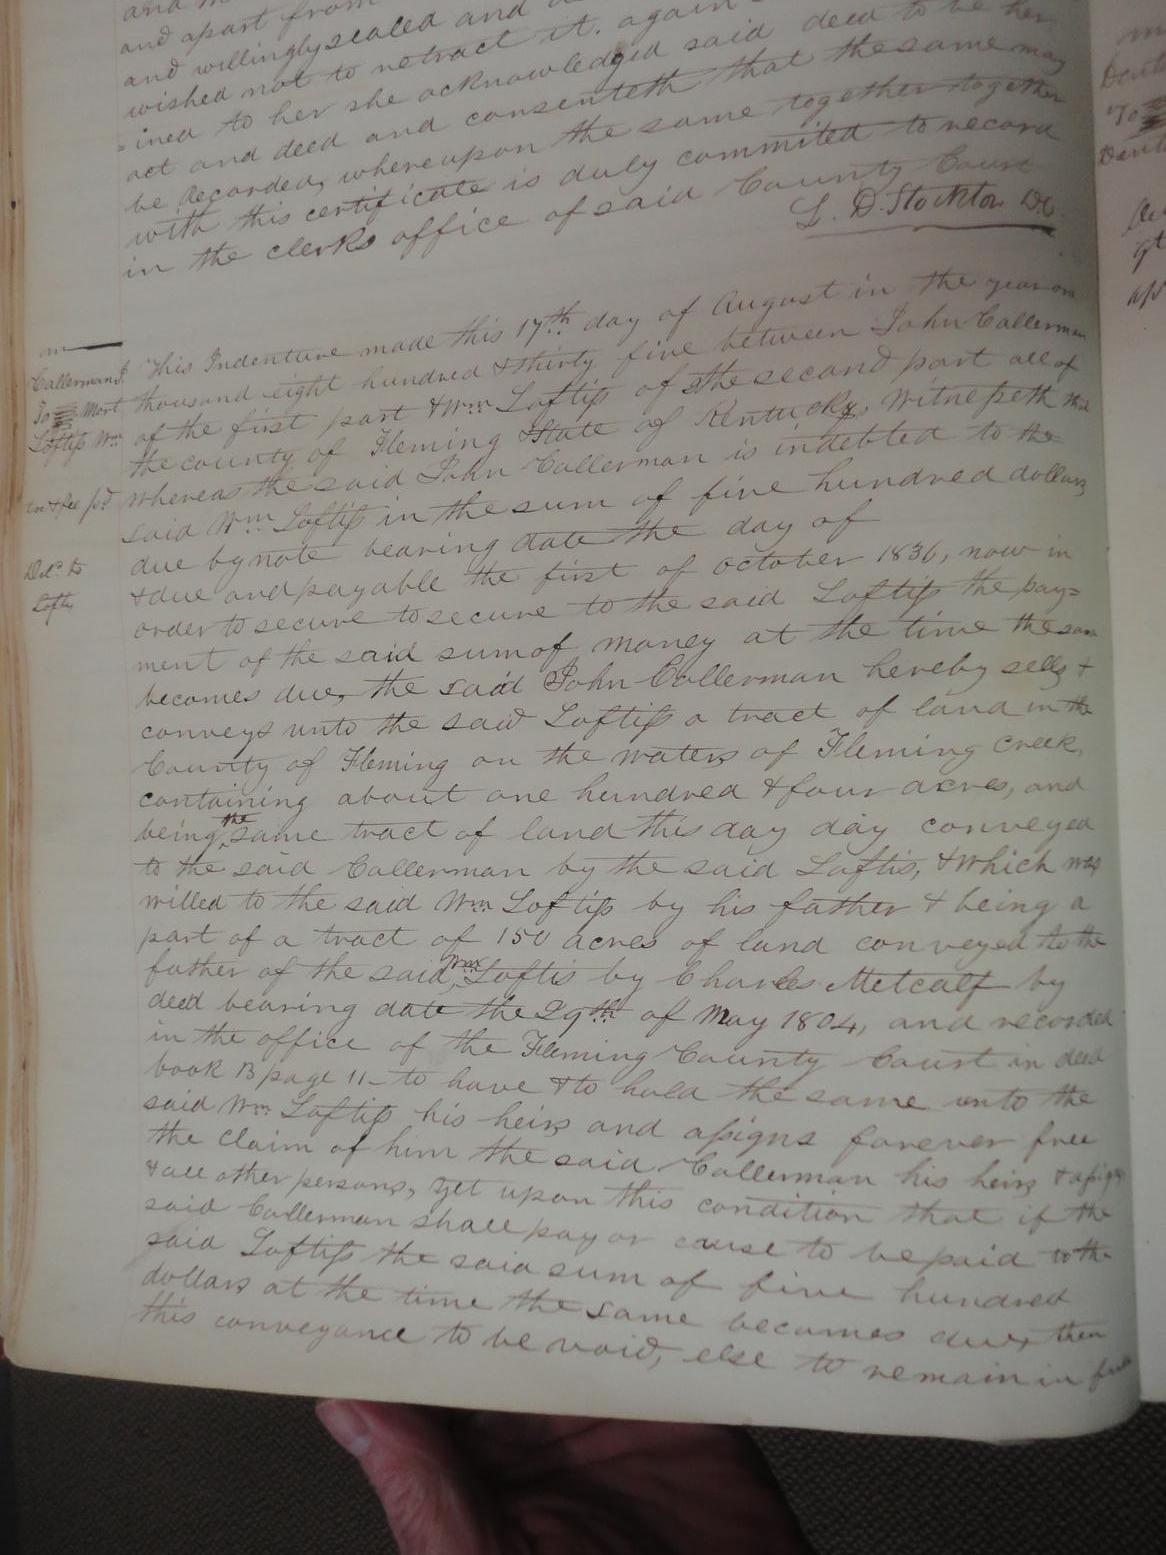 and apart from
and willingly sealed and
wished not to retract it. again
- ined to her she acknowledged said deed to be her
act and deed and consenteth that the same may
be Recorded, whereupon the same together together
with this certificate is duly commited to record
in the clerks office of said County Court
L. D. Stockton D.C.
Callerman J.
To Mort
Loftiss Wm
tax & fee pd
Deld to
Lofty
This Indenture made this 17th day of August in the year one
thousand eight hundred & thirty five between John Callerman
of the first part & Wm Loftiss of the second part all of
the county of Fleming & State of Kentucky, Witnesseth that
whereas the said John Callerman is indebted to the
said Wm Loftiss in the sum of five hundred dollars
due by note bearing date the day of
& due and payable the first of October 1836, now in
order to secure to secure to the said Loftiss the pay=
ment of the said sum of money at the time the same
becomes due, the said John Callerman hereby sells &
conveys unto the said Loftiss a tract of land in the
County of Fleming on the waters of Fleming Creek,
containing about one hundred & four acres, and
being the same tract of land this day day conveyed
to the said Callerman by the said Loftis, & which was
willed to the said Wm Loftiss by his father & being a
part of a tract of 150 acres of land conveyed to the
father of the said Wm Loftis by Charles Metcalf by
deed bearing date the 29th of May 1804, and recorded
in the office of the Fleming County Court in deed
book B page 11 - to have & to hold the same unto the
said Wm Loftiss his heirs and assigns forever free
the claim of him the said Callerman his heirs & assigns
& all other persons, yet upon this condition that if the
said Callerman shall pay or cause to be paid to the
said Loftiss the said sum of five hundred
dollars at the time the same becomes due, then
this conveyance to be void, else to remain in full